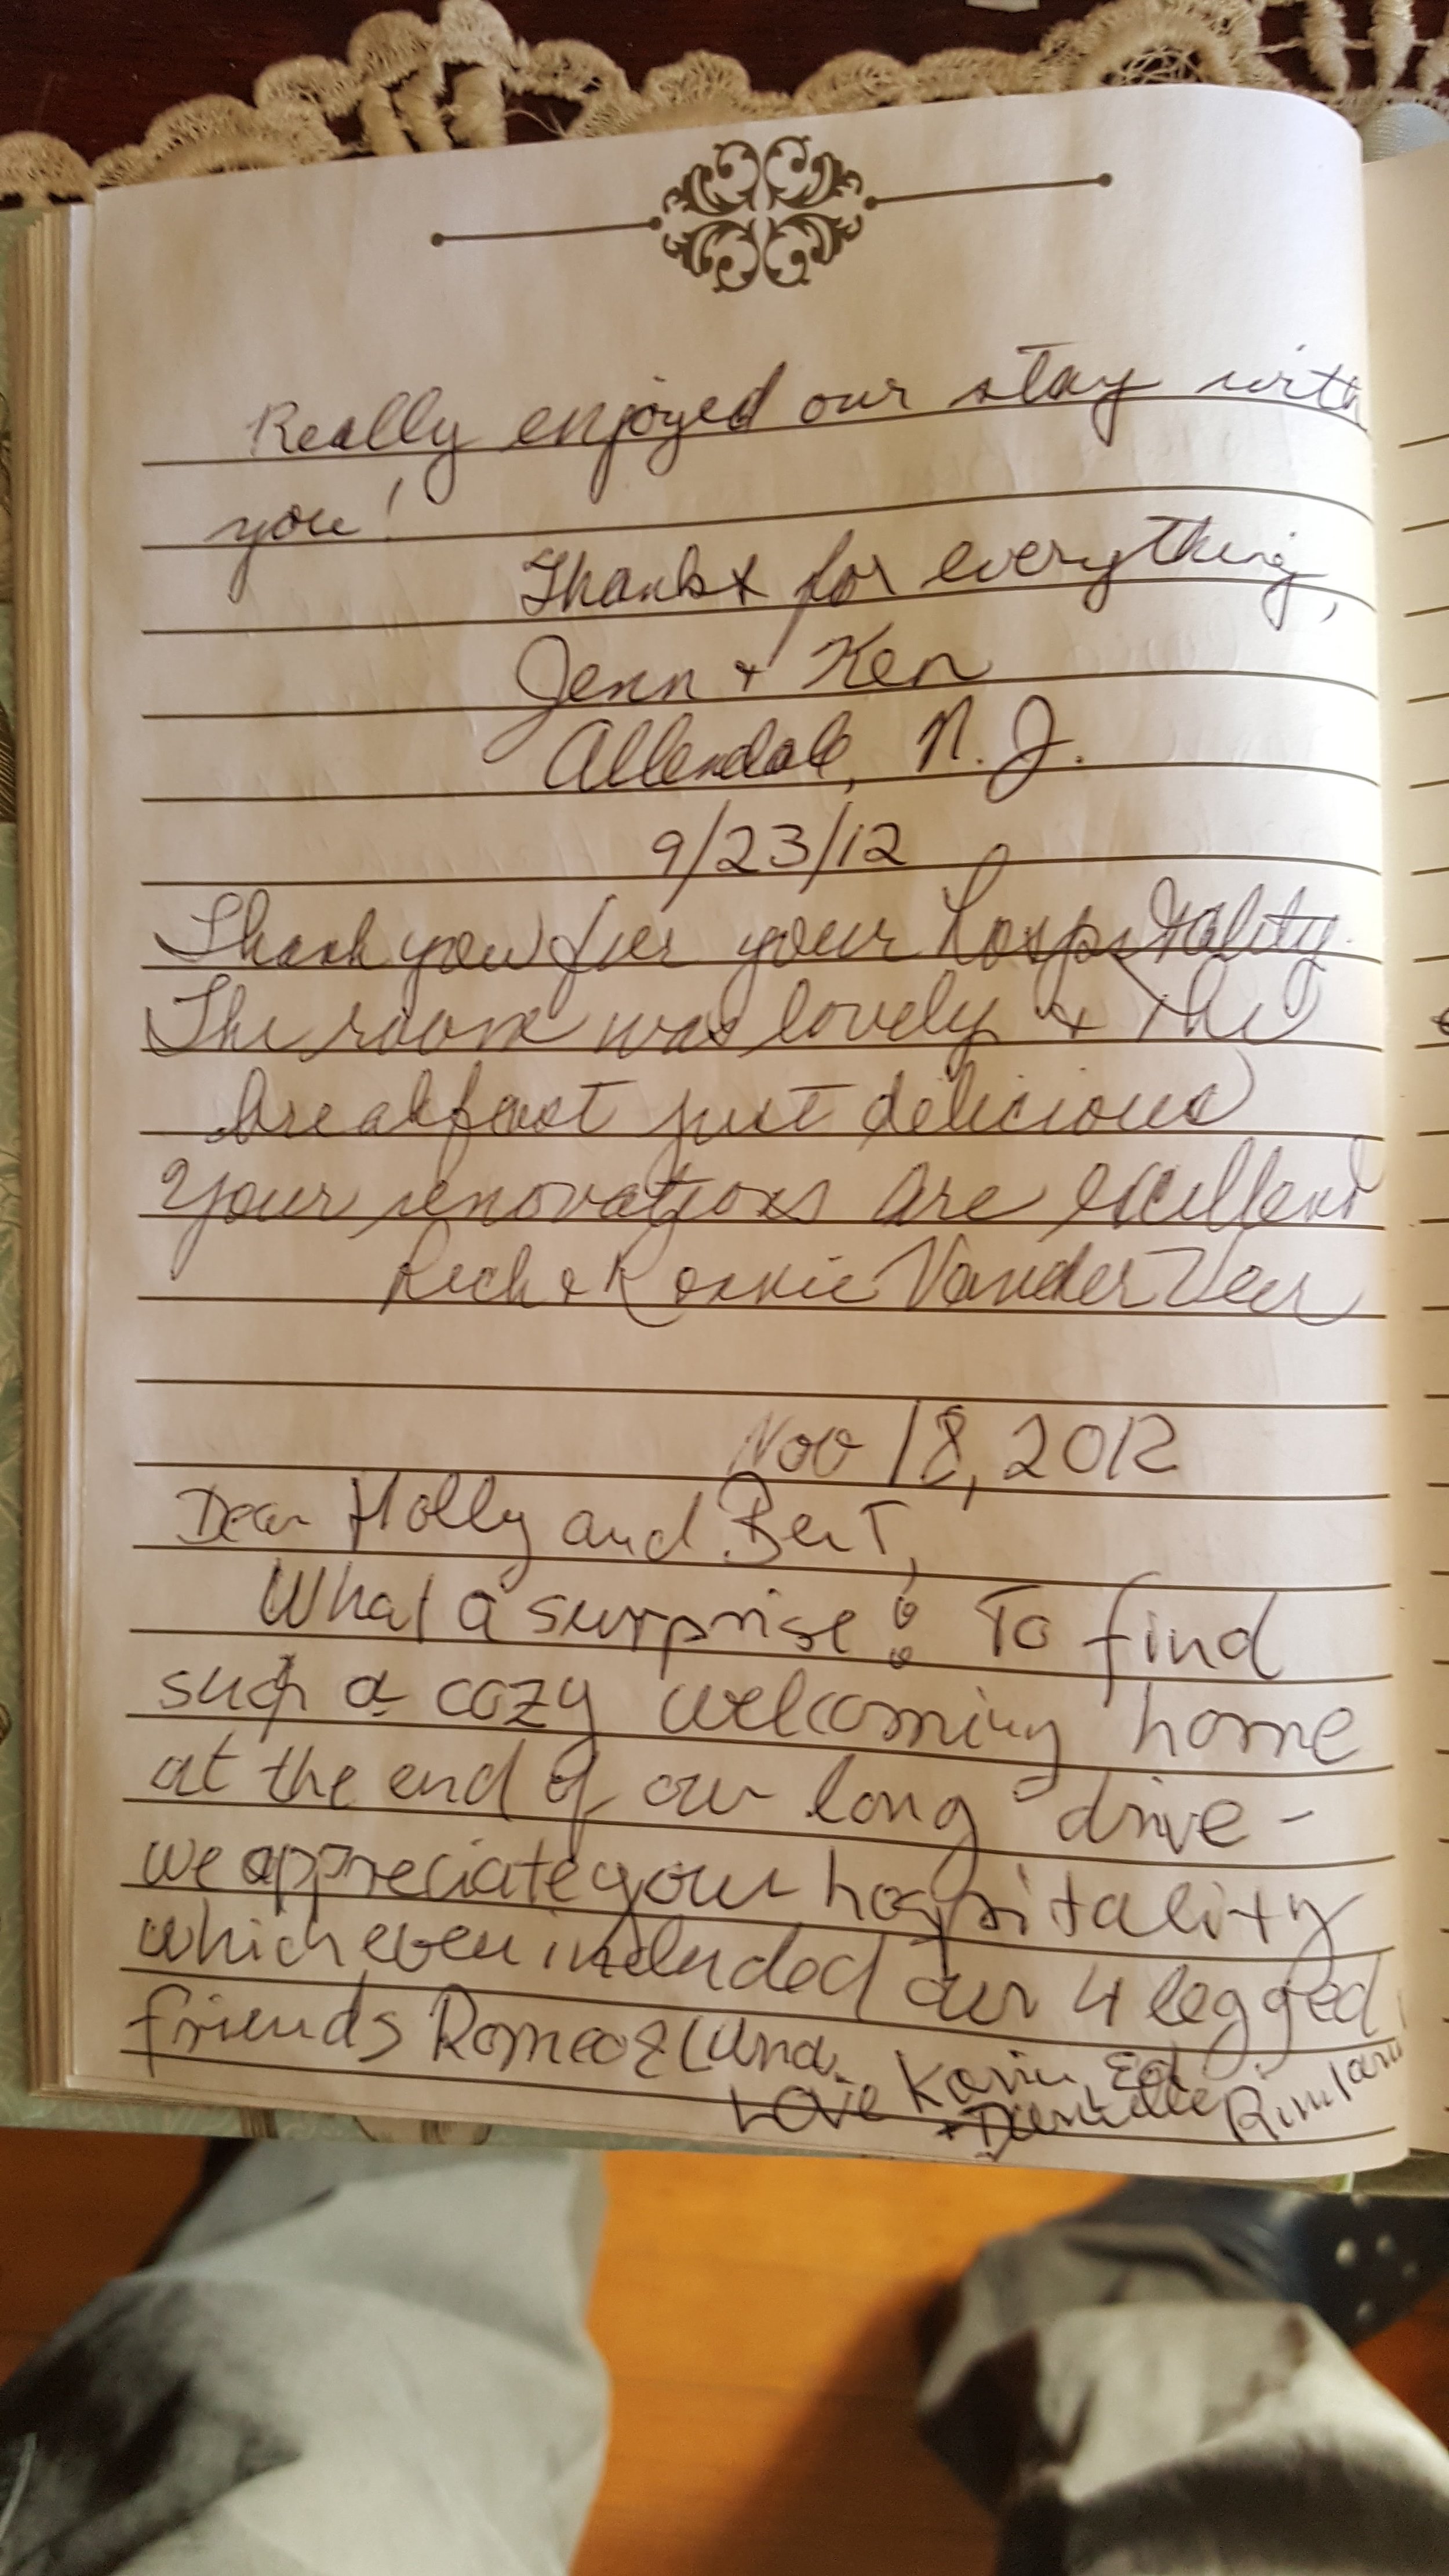 Really enjoyed our stay with
you!
Thanks for everything,
Jenn + Ken
Allendale, N.J.
9/23/12
Thank you for your hospitality.
The room was lovely + the
breakfast just delicious
Your renovations are excellent
Rich & Ronnie Vander Veer
Nov 18, 2012
Dear Holly and Bert,
What a surprise! To find
such a cozy welcoming home
at the end of our long drive -
we appreciate your hospitality
which even included our 4 legged
friends Romeo & Luna.
Love Karin, Ed
+ Danielle